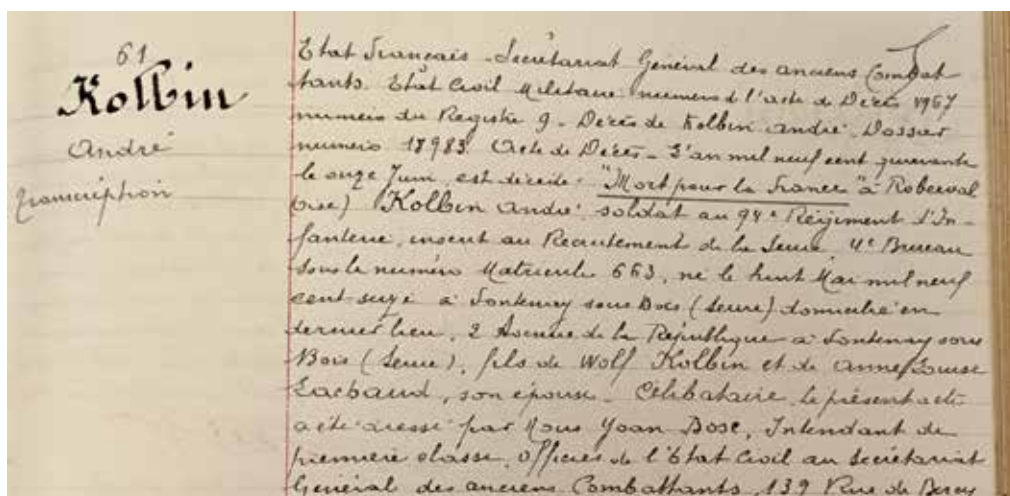 61
Kolbin
André
transcription
Etat Français - Secrétariat Général des anciens Combat
tants. Etat Civil Militaire numéro d l'acte de Décès 1967
numéro du Registre 9 - Décès de Kolbin André. Dossier
numéro 17983. Acte de Décès - L'an mil neuf cent quarante
le onze Juin, est décédé - "Mort pour la France" à Roberval
(oise) Kolbin André soldat au 98e Régiment d'In-
fanterie, inscrit au Recrutement de la Seine, 4e Bureau
sous le numéro Matricule 663, né le huit Mai mil neuf
cent seize à Fontenay sous Bois (Seine) domicilié en
dernier lieu, 2 Avenue de la République à Fontenay sous
Bois (Seine), fils de Wolf Kolbin et de Anne Louise
Lachaud, son épouse - Célibataire, le présent acte
a été dressé par Nous Yoan Bose, Intendant de
première classe, Officier de l'Etat Civil au Secrétariat
Général des anciens Combattants, 139 Rue de Bercy